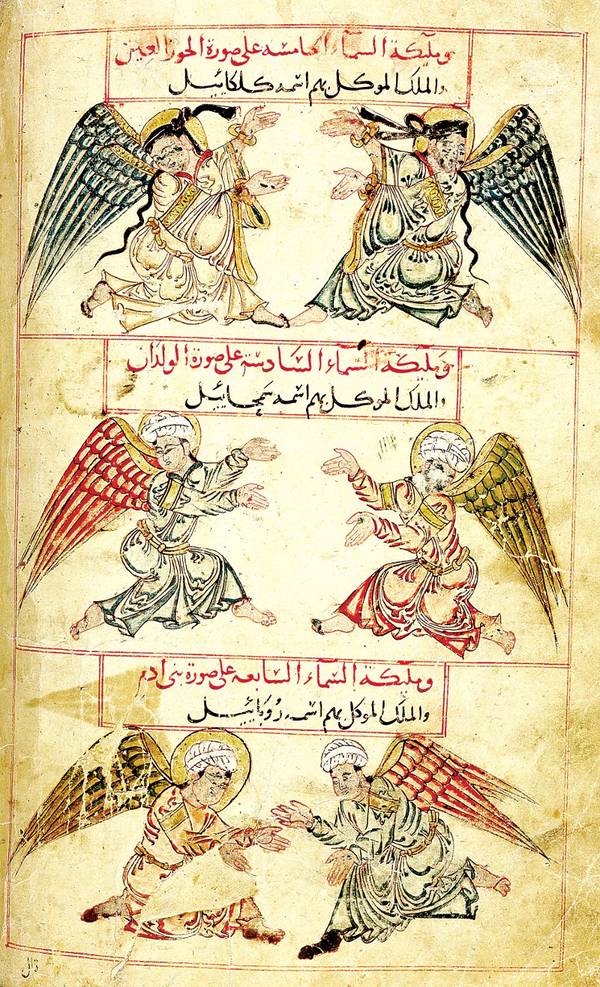 ومليكة السماء الخامسه على صورة الحور العين
والملك الموكل بهم اسمه كلكاييل
ومليكة السماء السادسة على صورة الولدان
والملك الموكل بهم اسمه سمحاييل
ومليكة السماء السابعه على صورة بنى ادم
والملك الموكل بهم اسمه روياييل
قال